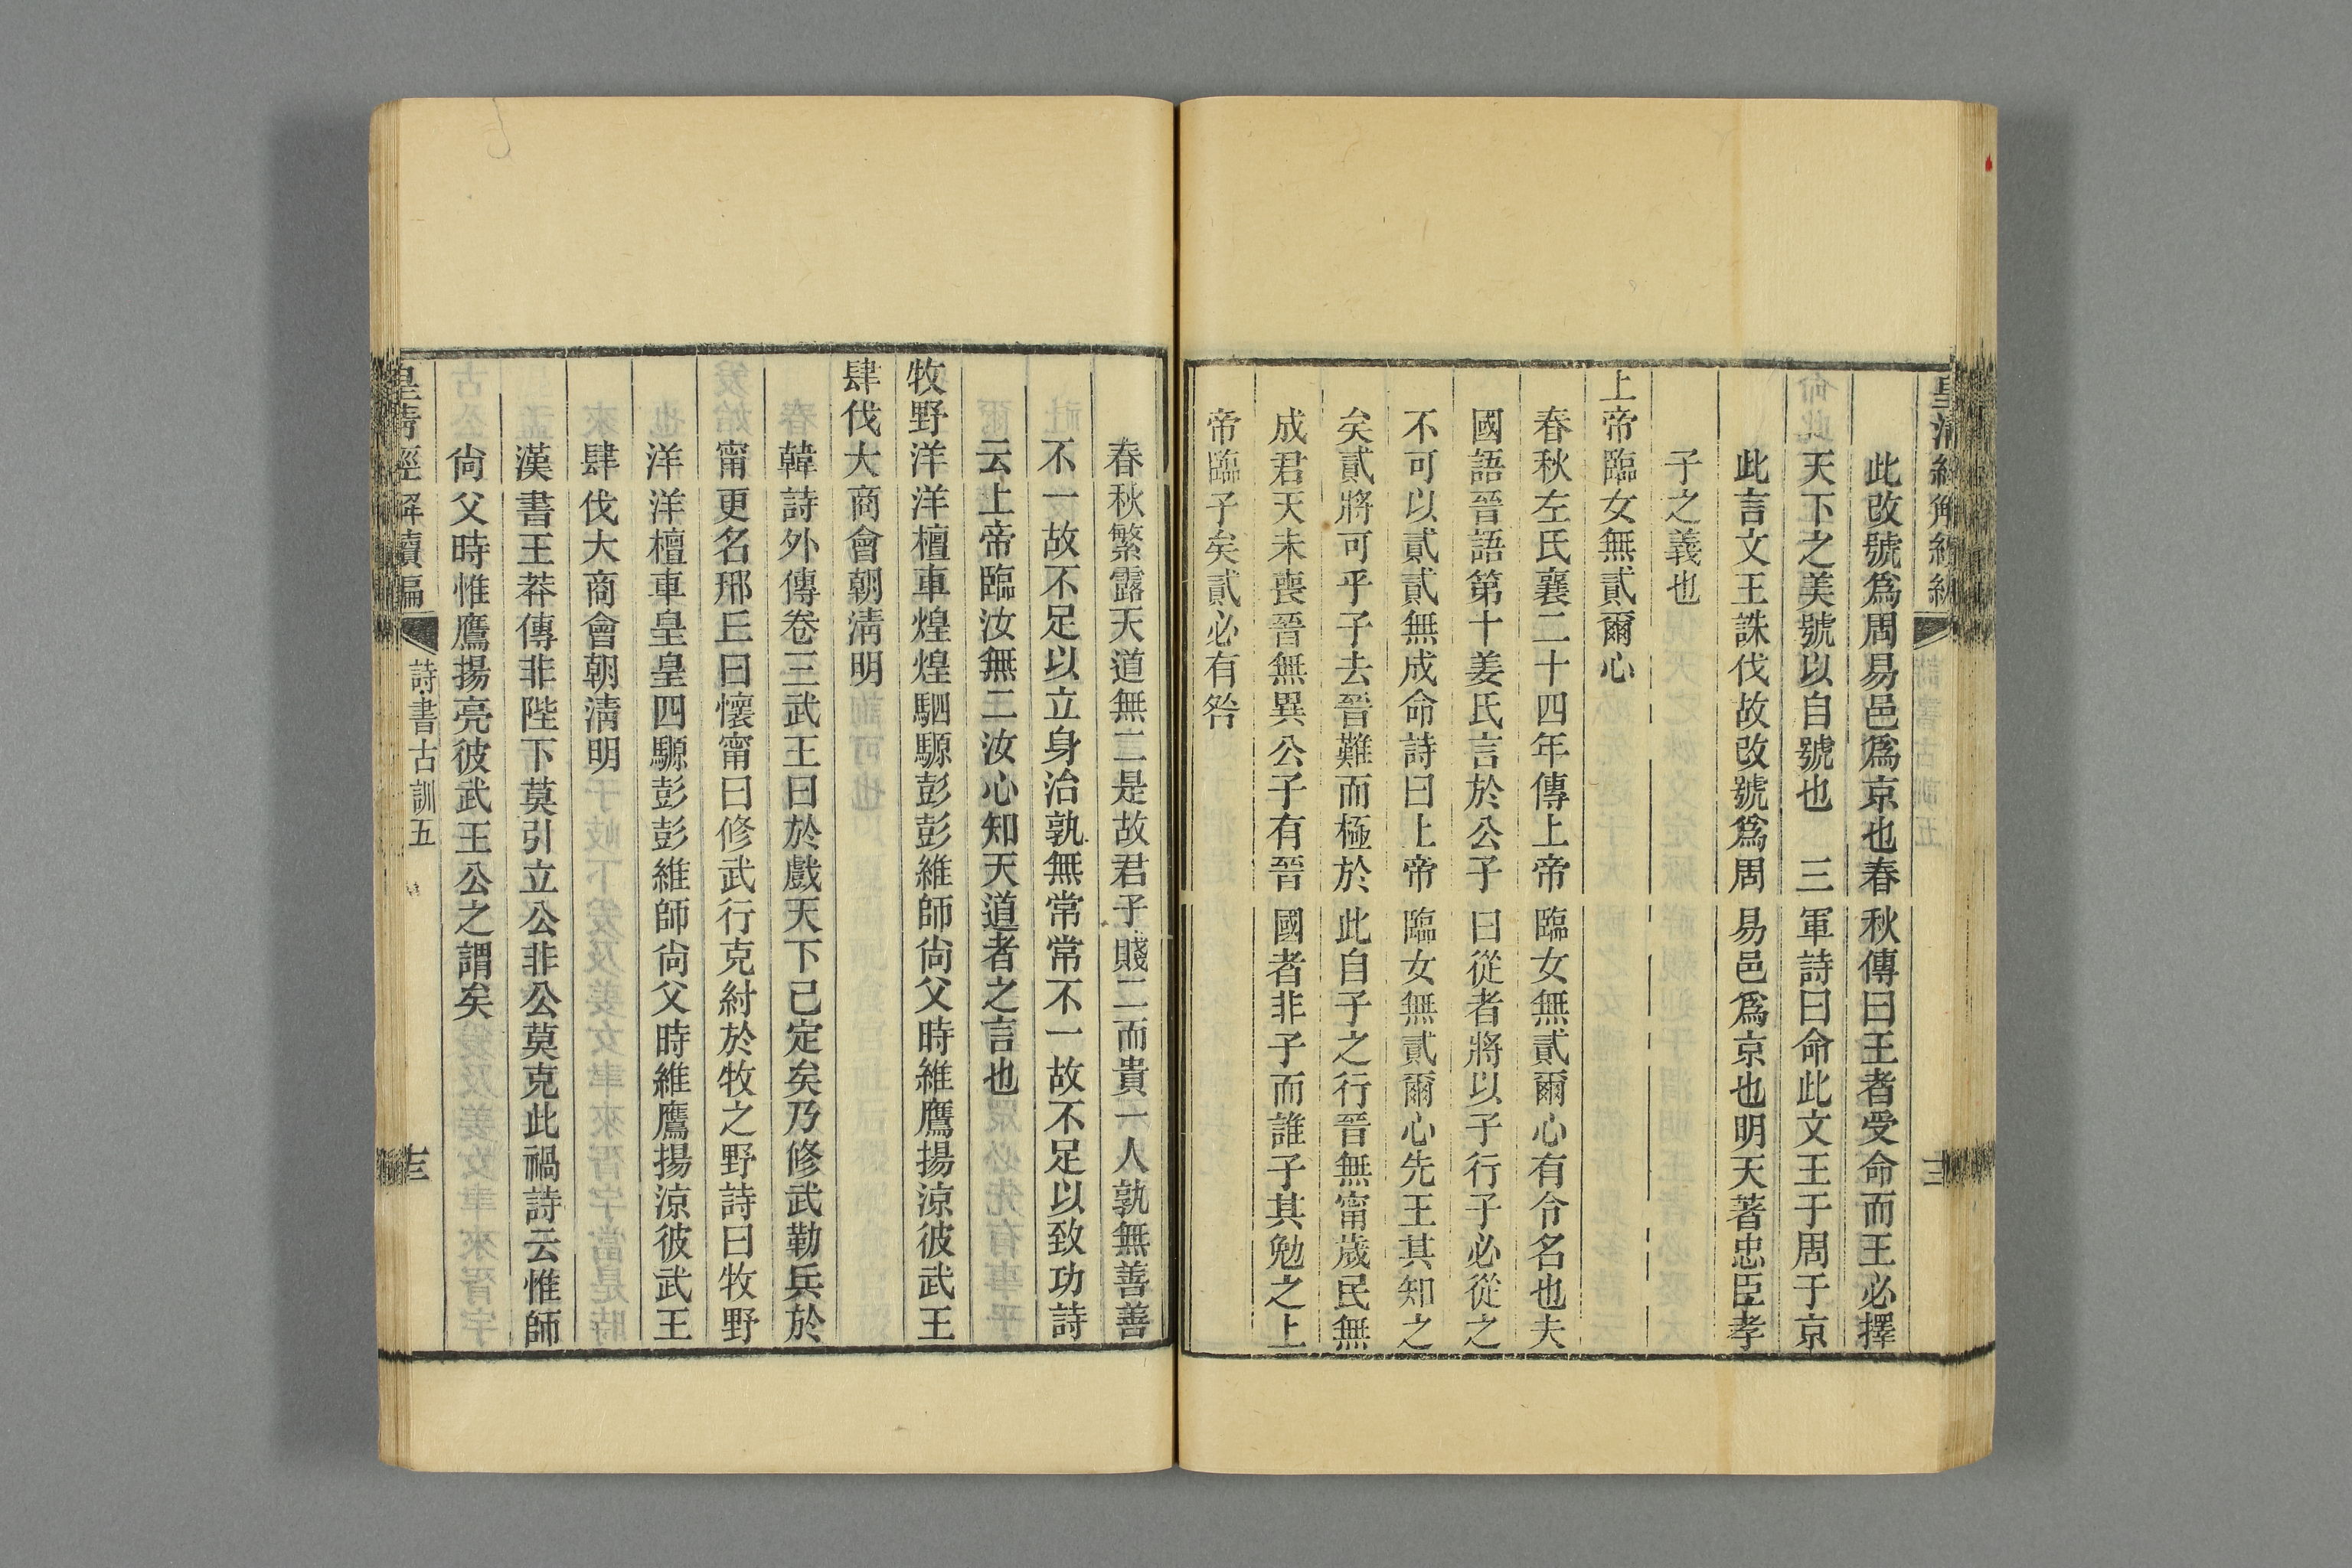 此改號爲周易邑爲京也春秋傳曰王者受命而王必擇
天下之美號以自號也　三軍詩曰命此文王于周于京
此言文王誅伐故改號爲周易邑爲京也明天著忠臣孝
子之義也
上帝臨女無貳爾心
春秋左氏襄二十四年傳上帝臨女無貳爾心有令名也夫
國語晉語第十姜氏言於公子曰從者將以子行子必從之
不可以貳貳無成命詩曰上帝臨女無貳爾心先王其知之
矣貳將可乎子去晉難而極於此自子之行晉無甯歲民無
成君天未喪晉無異公子有晉國者非子而誰子其勉之上
帝臨子矣貳必有咎
春秋繁露天道無二是故君子賤二而貴一人孰無善善
不一故不足以立身治孰無常常不一故不足以致功詩
云上帝臨汝無二汝心知天道者之言也
牧野洋洋檀車煌煌駟騵彭彭維師尙父時維鷹揚涼彼武王
肆伐大商會朝淸明
韓詩外傳卷三武王曰於戲天下已定矣乃修武勒兵於
甯更名邢丘曰懷甯曰修武行克紂於牧之野詩曰牧野
洋洋檀車皇皇四騵彭彭維師尙父時維鷹揚涼彼武王
肆伐大商會朝淸明
漢書王莽傳非陛下莫引立公非公莫克此禍詩云惟師
尙父時惟鷹揚亮彼武王公之謂矣
皇淸經解續編　詩書古訓五　十三